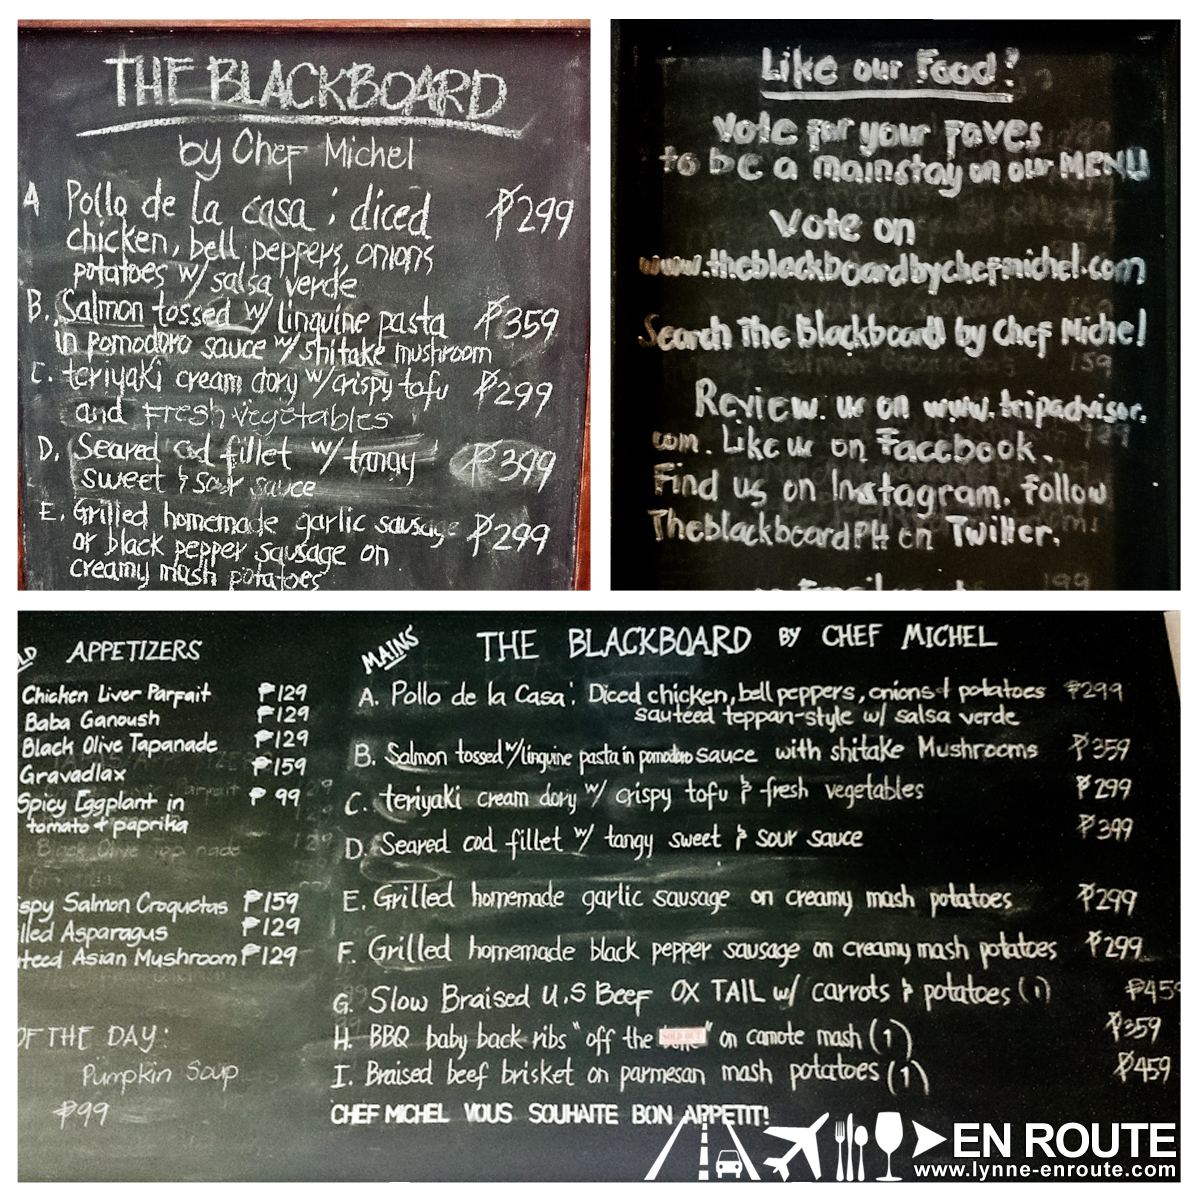 THE BLACKBOARD
by Chef Michel
A Pollo de la casa : diced ₱299
chicken, bell peppers, onions
potatoes w/ salsa verde
B. Salmon tossed w/ linguine pasta ₱359
in pomodoro sauce w/ shitake mushroom
C. teriyaki cream dory w/ crispy tofu ₱299
and Fresh vegetables
D. Seared cod fillet w/ tangy ₱399
sweet & sour sauce
E. Grilled homemade garlic sausage ₱299
or black pepper sausage on
creamy mash potatoes
Like our Food!
Vote for your faves
to be a mainstay on our MENU
Vote on
www.theblackboardbychefmichel.com
Search The Blackboard by Chef Michel
Review us on www.tripadvisor.
com. Like us on Facebook.
Find us on Instagram. Follow
TheblackboardPH on Twitter.
APPETIZERS
Chicken Liver Parfait ₱129
Baba Ganoush ₱129
Black Olive Tapanade ₱129
Gravadlax ₱159
Spicy Eggplant in ₱99
tomato + paprika
spy Salmon Croquetas ₱159
lled Asparagus ₱129
teed Asian Mushroom ₱129
OF THE DAY:
Pumpkin Soup
₱99
MAINS
THE BLACKBOARD BY CHEF MICHEL
A. Pollo de la Casa: Diced chicken, bell peppers, onions & potatoes ₱299
sauteed teppan-style w/ salsa verde
B. Salmon tossed w/ linguine pasta in pomodoro sauce with shitake Mushrooms ₱359
C. teriyaki cream dory w/ crispy tofu & fresh vegetables ₱299
D. Seared cod fillet w/ tangy sweet & sour sauce ₱399
E. Grilled homemade garlic sausage on creamy mash potatoes ₱299
F. Grilled homemade black pepper sausage on creamy mash potatoes ₱299
G. Slow Braised U.S Beef OX TAIL w/ carrots & potatoes (1) ₱459
H. BBQ baby back ribs "off the " on camote mash (1) ₱359
I. Braised beef brisket on parmesan mash potatoes (1) ₱459
CHEF MICHEL VOUS SOUHAITE BON APPETIT!
EN ROUTE
www.lynne-enroute.com